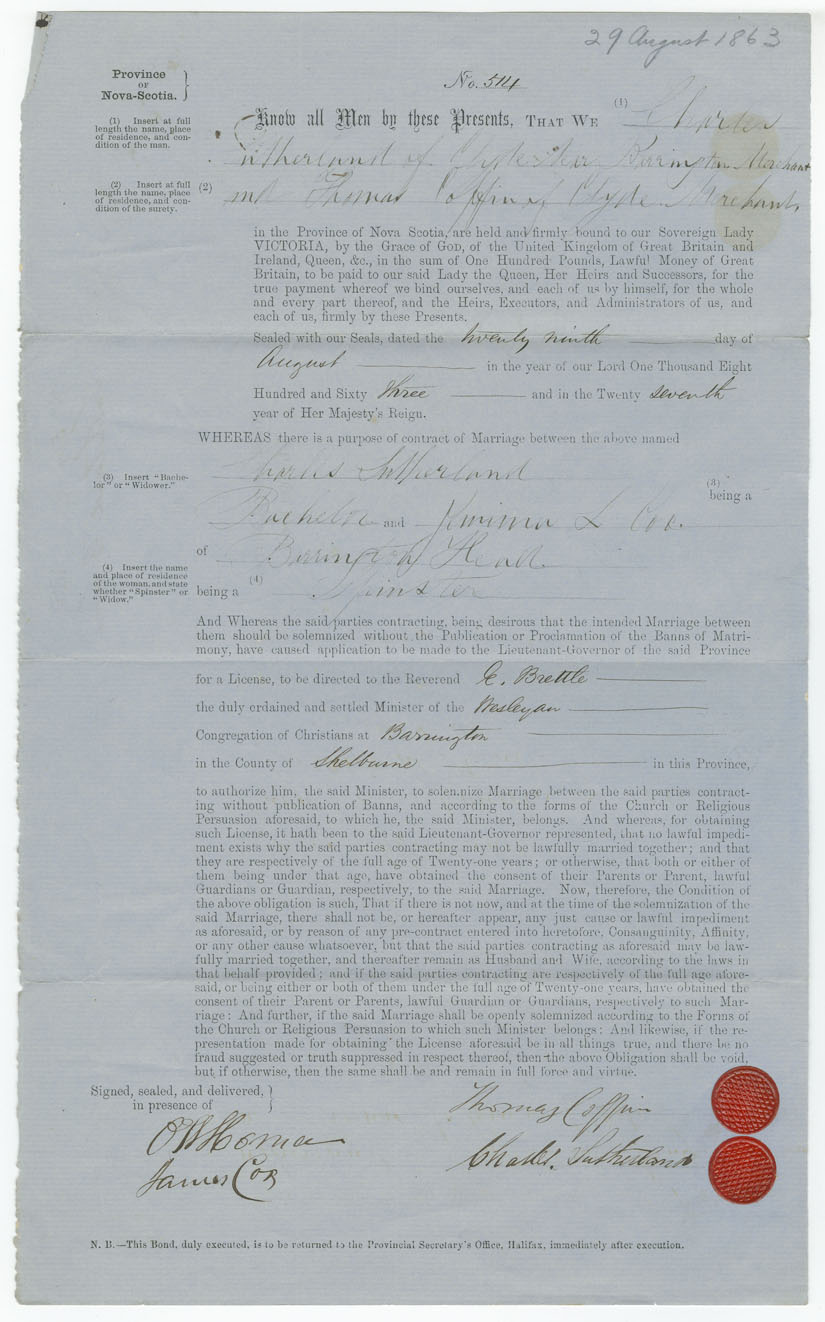 29 August 1863
Province
OF
Nova-Scotia.
No. 514
(1) Insert at full
length the name, place
of residence, and con-
dition of the man.
Know all Men by these Presents, THAT WE (1) Charles
Sutherland of Clyde River Barrington Merchant
(2) Insert at full
length the name, place
of residence, and con-
dition of the surety.
(2) and Thomas Coffin of Clyde Merchant
in the Province of Nova Scotia, are held and firmly bound to our Sovereign Lady
VICTORIA, by the Grace of GOD, of the United Kingdom of Great Britain and
Ireland, Queen, &c., in the sum of One Hundred Pounds, Lawful Money of Great
Britain, to be paid to our said Lady the Queen, Her Heirs and Successors, for the
true payment whereof we bind ourselves, and each of us by himself, for the whole
and every part thereof, and the Heirs, Executors, and Administrators of us, and
each of us, firmly by these Presents.
Sealed with our Seals, dated the twenty ninth day of
August in the year of our Lord One Thousand Eight
Hundred and Sixty three and in the Twenty seventh
year of Her Majesty's Reign.
WHEREAS there is a purpose of contract of Marriage between the above named
(3) Insert "Bache-
lor" or "Widower."
Charles Sutherland (3) being a
Bachelor and L Cox
of Barrington Head
(4) Insert the name
and place of residence
of the woman, and state
whether "Spinster" or
"Widow."
being a (4) Spinster
And Whereas the said parties contracting, being desirous that the intended Marriage between
them should be solemnized without the Publication or Proclamation of the Banns of Matri-
mony, have caused application to be made to the Lieutenant-Governor of the said Province
for a License, to be directed to the Reverend E. Brettle
the duly ordained and settled Minister of the Wesleyan
Congregation of Christians at Barrington
in the County of Shelburne in this Province,
to authorize him, the said Minister, to solemnize Marriage between the said parties contract-
ing without publication of Banns, and according to the forms of the Church or Religious
Persuasion aforesaid, to which he, the said Minister, belongs. And whereas, for obtaining
such License, it hath been to the said Lieutenant-Governor represented, that no lawful impedi-
ment exists why the said parties contracting may not be lawfully married together; and that
they are respectively of the full age of Twenty-one years; or otherwise, that both or either of
them being under that age, have obtained the consent of their Parents or Parent, lawful
Guardians or Guardian, respectively, to the said Marriage. Now, therefore, the Condition of
the above obligation is such, That if there is not now, and at the time of the solemnization of the
said Marriage, there shall not be, or hereafter appear, any just cause or lawful impediment
as aforesaid, or by reason of any pre-contract entered into heretofore, Consanguinity, Affinity,
or any other cause whatsoever, but that the said parties contracting as aforesaid may be law-
fully married together, and thereafter remain as Husband and Wife, according to the laws in
that behalf provided; and if the said parties contracting are respectively of the full age afore-
said, or being either or both of them under the full age of Twenty-one years, have obtained the
consent of their Parent or Parents, lawful Guardian or Guardians, respectively to such Mar-
riage: And further, if the said Marriage shall be openly solemnized according to the Forms of
the Church or Religious Persuasion to which such Minister belongs: And likewise, if the re-
presentation made for obtaining the License aforesaid be in all things true, and there be no
fraud suggested or truth suppressed in respect thereof, then the above Obligation shall be void,
but if otherwise, then the same shall be and remain in full force and virtue.
Signed, sealed, and delivered,
in presence of
Thomas Coffin
Charles Sutherland
James Cox
N. B.—This Bond, duly executed, is to be returned to the Provincial Secretary's Office, Halifax, immediately after execution.